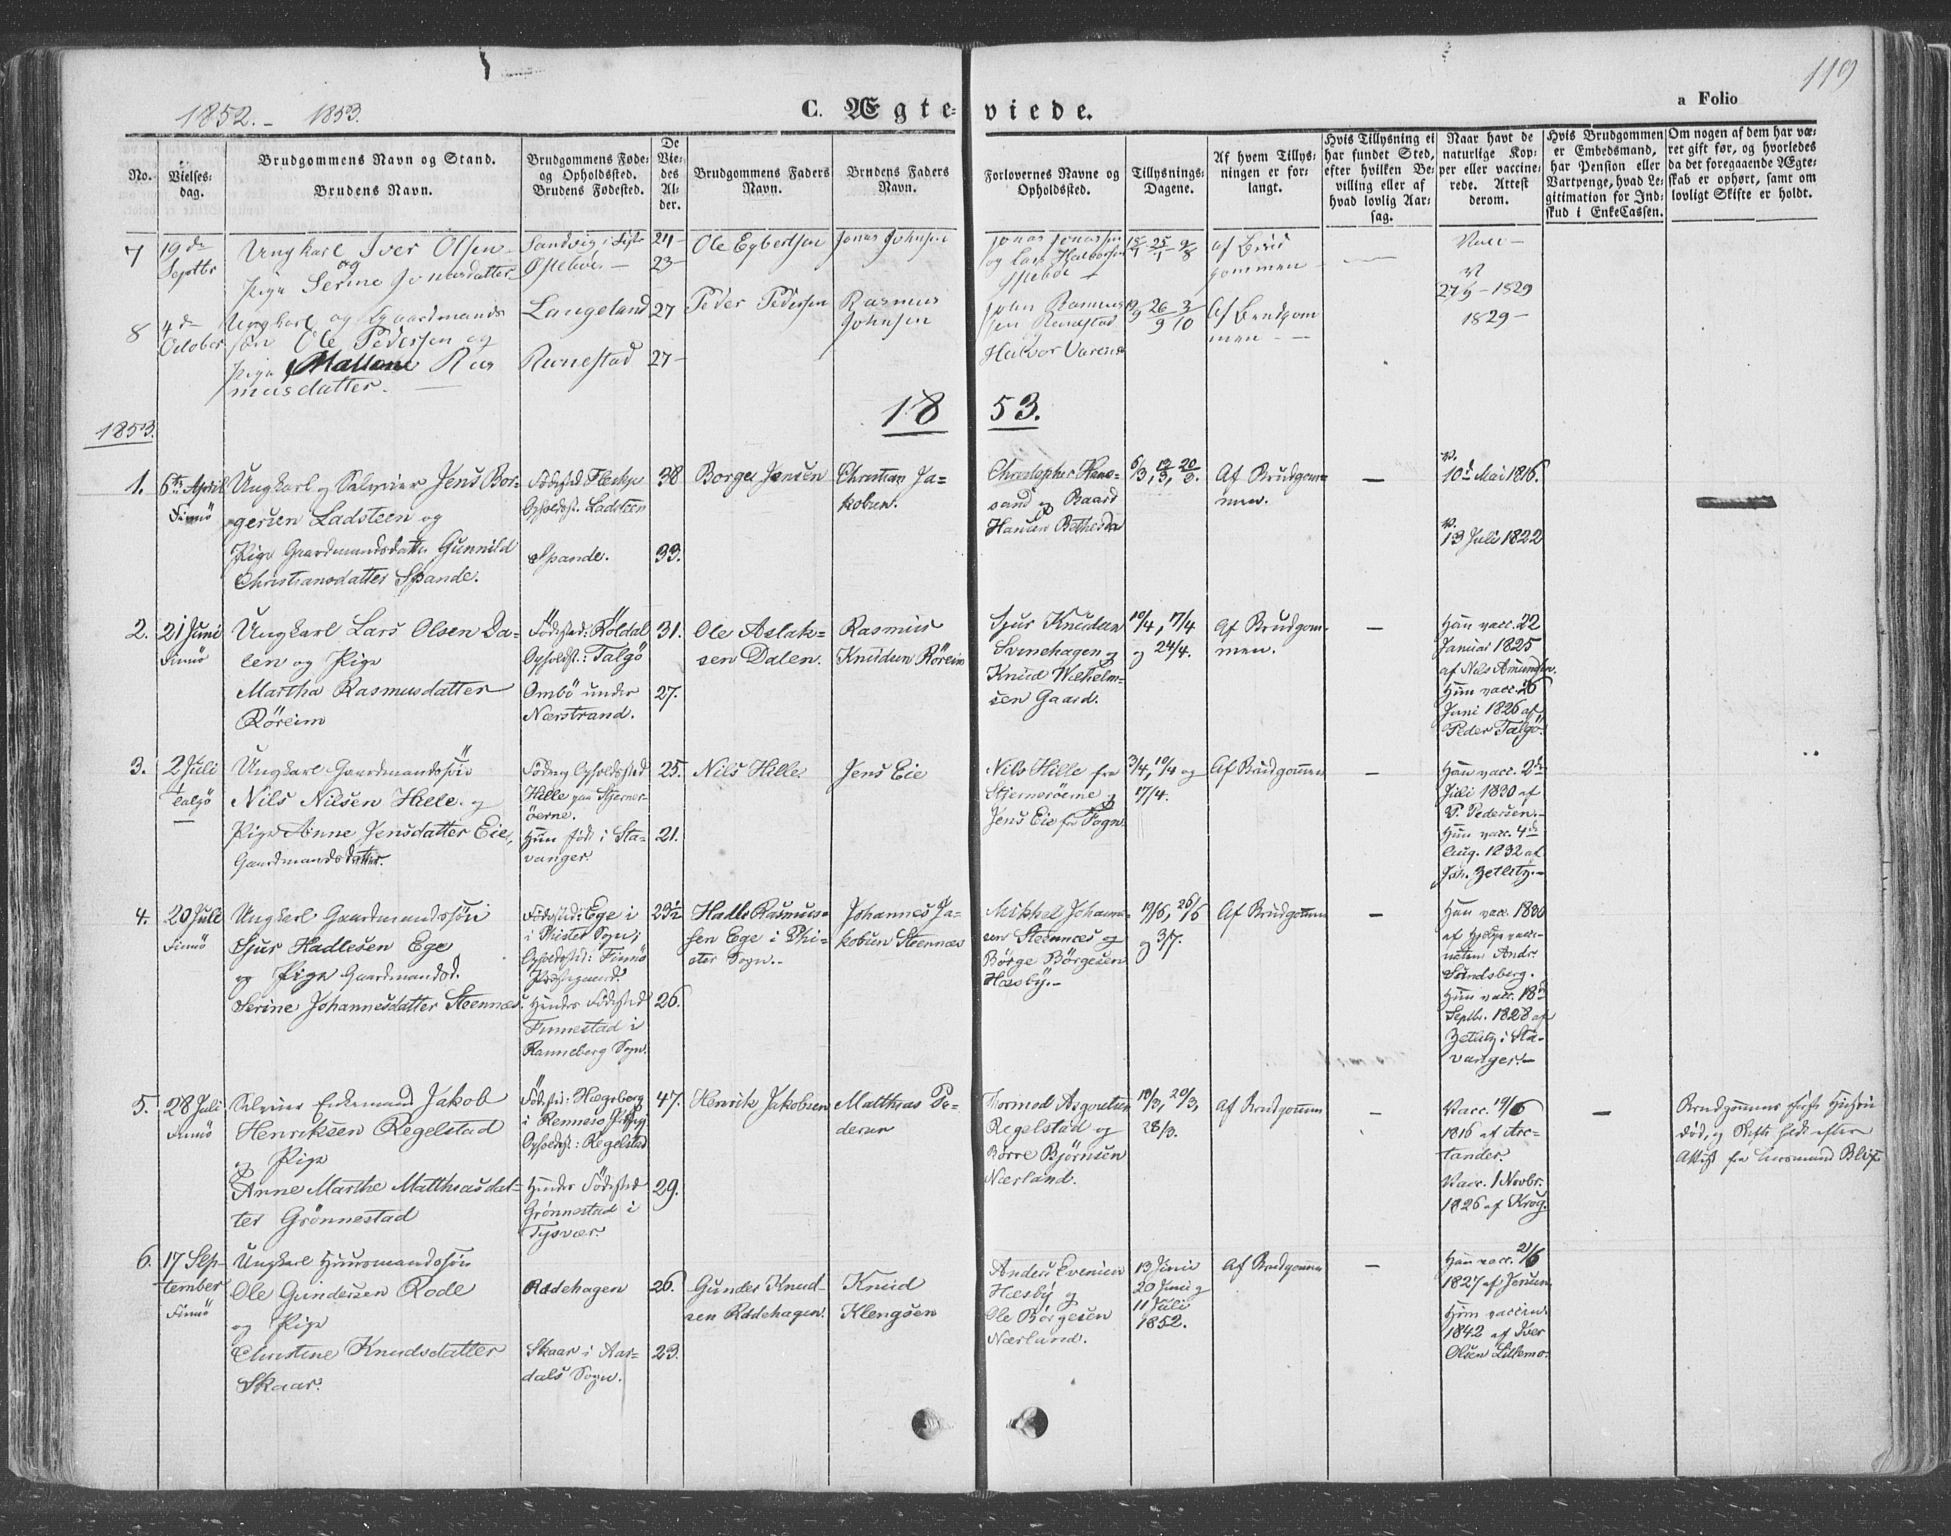 119
1852.- 1853.
C. Ægteviede.
a Folio
No.
Vielses-
dag.
Brudgommens Navn og Stand.
Brudens Navn.
Brudgommens Føde-
og Opholdssted.
Brudens Fødested.
De
Vie-
des
Al-
der.
Brudgommens Faders
Navn.
Brudens Faders
Navn.
Forlovernes Navne og
Opholdssted.
Tillysnings-
Dagene.
Af hvem Tillys-
ningen er for-
langt.
Hvis Tillysning ei
har fundet Sted,
efter hvilken Be-
villing eller af
hvad lovlig Aar-
sag.
Naar havt de
naturlige Kop-
per eller vaccine-
rede. Attest
derom.
Hvis Brudgommen
er Embedsmand,
har Pension eller
Vartpenge, hvad Le-
gitimation for Ind-
skud i EnkeCassen.
Om nogen af dem har væ-
ret gift før, og hvorledes
da det foregaaende Ægte-
skab er ophørt, samt om
lovligt Skifte er holdt.
7
19de
Septbr
Ungkarl Iver Olsen
og
Pige Serine Jonasdatter
Sandvig i
Østebøe
24
23
Ole Egbertsen
Jonas Johnsen
Jonas Jonassen
og Lars Halvorsen
af Brud
gommen
Vacc
8
4de
October
Ungkarl og Gaardmands
søn Ole Pedersen og
Pige Mallene Ras
musdatter.
Langeland
Runestad
27
27
Peder Pedersen
Rasmus
Johnsen
John Rasmus
sen Runestad
Halvor
26/9 3/10
Af Brudgom
men
27/9 - 1829
1829
18 53.
1853.
1.
6te April
Finnö
Ungkarl og Selveier Jens Bor-
gersen Ladsteen og
Pige Gaardmandsdatter Gunnild
Christiansdatter Spande.
Födested
Opholdst. Ladsteen
Spande.
38
33.
Borge Jensen
Christian Ja-
kobsen.
Christopher
sand og Baard
Hansen Bethesda
6/3, 13/3, 20/3.
Af Brudgom-
men.
v.
10de Mai 1816.
v.
13 Juli 1822
2.
21 Juni
Finnö
Ungkarl Lars Olsen Da-
len og Pige
Martha Rasmusdatter
Röreim
Födested: Röldal
Opholdst.: Talgö
Ombö under
Nærstrand.
31.
27.
Ole Aslak-
sen Dalen.
Rasmus
Knudsen Röreim
Sjur Knudsen
Svinehagen og
Knud Wilhelm-
sen Gaard.
10/4, 17/4
og 24/4.
Af Brudgom-
men.
Han vacc. 22
Januar 1825
af Nils Amundsen.
Hun vacc. 26
Juni 1826 af
Peder Talgö.
3.
2 Juli
Talgö
Ungkarl Gaardmandssön
Nils Nilsen Hille og
Pige Anne Jensdatter Eie,
Gaardmandsdatter.
Föde og Opholdssted
Hille paa Stjerner-
öerne.
Hun föd i Sta-
vanger.
25.
21.
Nils Hille
Jens Eie
Nils Hille fra
Stjerneröerne og
Jens Eie fra Fogn.
3/4, 10/4 og
17/4.
Af Brudgommen
Han vacc. 2den
Juli 1830 af
P. Pedersen.
Hun vacc. 4de
Aug. 1832 af
Joh. Zetlitz.
4.
20 Juli
Finnö
Ungkarl Gaardmandssön
Sjur Hadlesen Ege
og Pige Gaardmandsd.
Serine Johannesdatter Steennæs
Födested: Ege i
i Vister Sogn;
Opholdsted: Finnö
Præstegaard.
Hendes Födested
Finnestad i
Ranneberg Sogn.
23½
26.
Hadle Rasmus-
sen Ege i Vi-
ster Sogn.
Johannes Ja-
kobsen Steennæs
Mikkel Johanne-
sen Steennæs og
Börge Börgesen
Hæsby.
19/6, 26/6
og 3/7.
Af Brudgommen
Han vacc. 1830
af Hjelpevacci-
natør Andr.
Sundsberg.
Hun vacc. 18de
Septbr. 1828 af
Zetlitz i Sta-
vanger.
5.
28 Juli
Finnö
Selveier Enkemand Jakob
Henriksen Regelstad
og Pige
Anne Marthe Matthiasdat-
ter Grönnestad
Födested: Hægeberg
i Rennesö
Opholdst: Regelstad
Hendes Födested
Grönnestad i
Tysvær.
47.
29.
Henrik Jakobsen
Matthias Pe-
dersen
Thormod Asgoutsen
Regelstad og
Börre Björnsen
Nærland.
13/3, 20/3,
28/3.
Af Brudgommen
Vacc. 19/6
1816 af Arc-
tander.
Vacc. 1 Novbr.
1826 af Krog.
Brudgommens förste Hustru
död, og Skifte holdt efter
Attest fra Lensmand
6.
17 Sep-
tember
Finnö
Ungkarl Huusmandssön
Ole Gundersen Rode
og Pige
Christine Knudsdatter
Skaar.
Rodehagen
Skaar i Aar-
dals Sogn.
26.
23.
Gunder Knud-
sen Rodehagen.
Knud
Klengsen
Anders Evensen
Hæsby og
Ole Börgesen
Nærland.
13 Juni
20 Juni og
11 Juli
1852.
Af Brudgommen
Han vacc. 21/6
1827 af Jensen
Hun vaccin.
1842 af Iver
Olsen Lillemo.